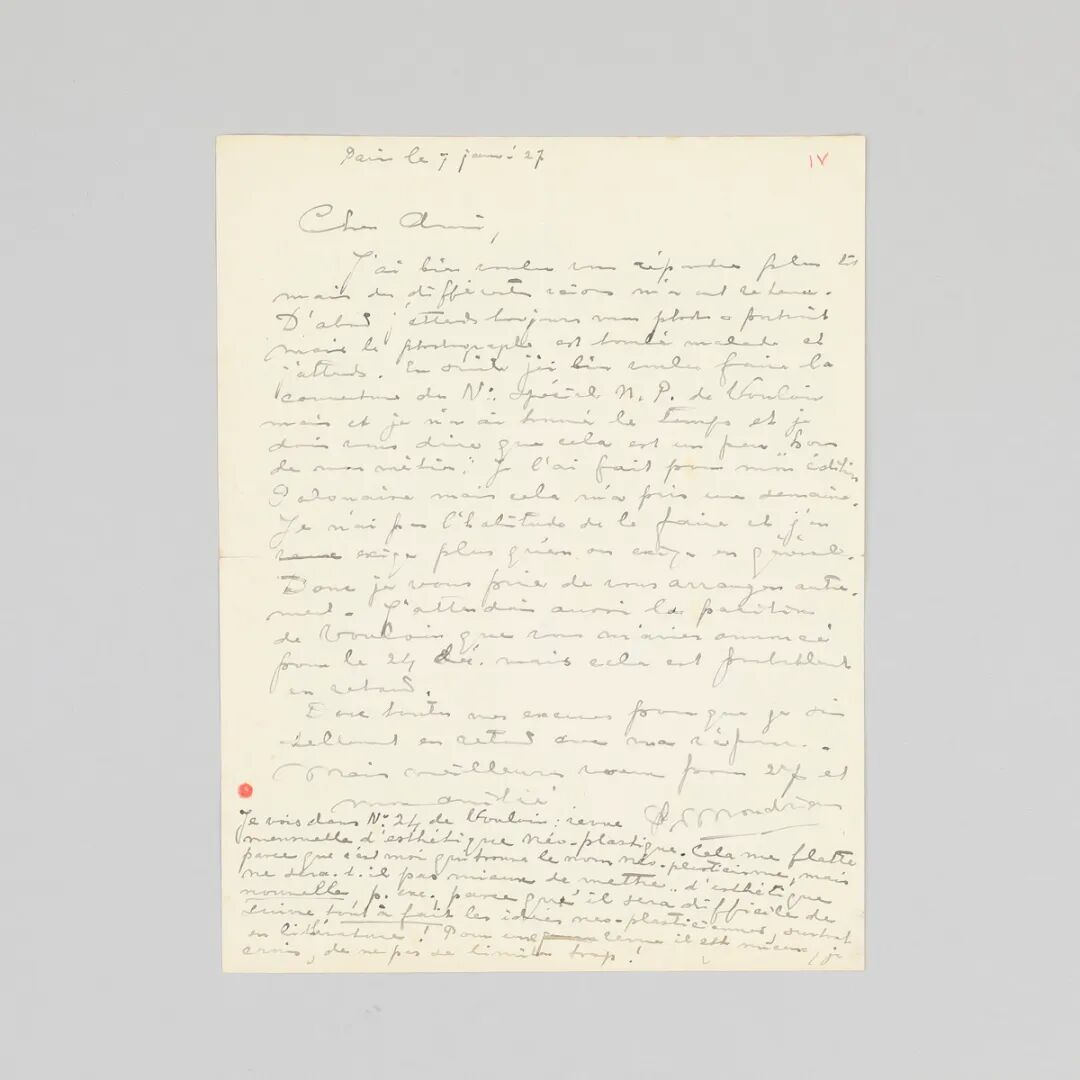 Paris le 7 janv. 27
IV
Cher Ami,
J'ai bien voulu vous répondre plus tôt
mais des différentes raisons m'en ont retenu.
D'abord j'attends toujours mes photos portrait
mais le photographe est tombé malade et
j'attends. En suite j'ai bien voulu faire la
couverture du No. spécial N. P. de Vouloir
mais je n'en ai trouvé le temps et je
dois vous dire que cela est un peu hors
de mon métier. Je l'ai fait pour mon édition
mais cela m'a pris une semaine.
Je n'ai pas l'habitude de le faire et j'en
exige plus qu'on en exige en général.
Donc je vous prie de vous arranger autre-
ment. J'attendais aussi la parution
de Vouloir que vous m'aviez annoncé
pour le 24 déc. mais cela est probablement
en retard.
Donc toutes mes excuses pour que je suis
tellement en retard avec ma réponse.
Mais meilleurs voeux pour 27 et
mon amitié
P Mondrian
Je vois dans No. 24 de Vouloir: revue
mensuelle d'esthétique néo-plastique. Cela me flatte
parce que c'est moi qui trouva le nom néo-plasticisme, mais
ne sera-t-il pas mieux de mettre "d'esthétique
nouvelle p. ex. parce qu'il sera difficile de
suivre tout à fait les idées néo-plasticiennes, surtout
en littérature! Pour une revue il est mieux, je
crois, de ne pas se limiter trop!